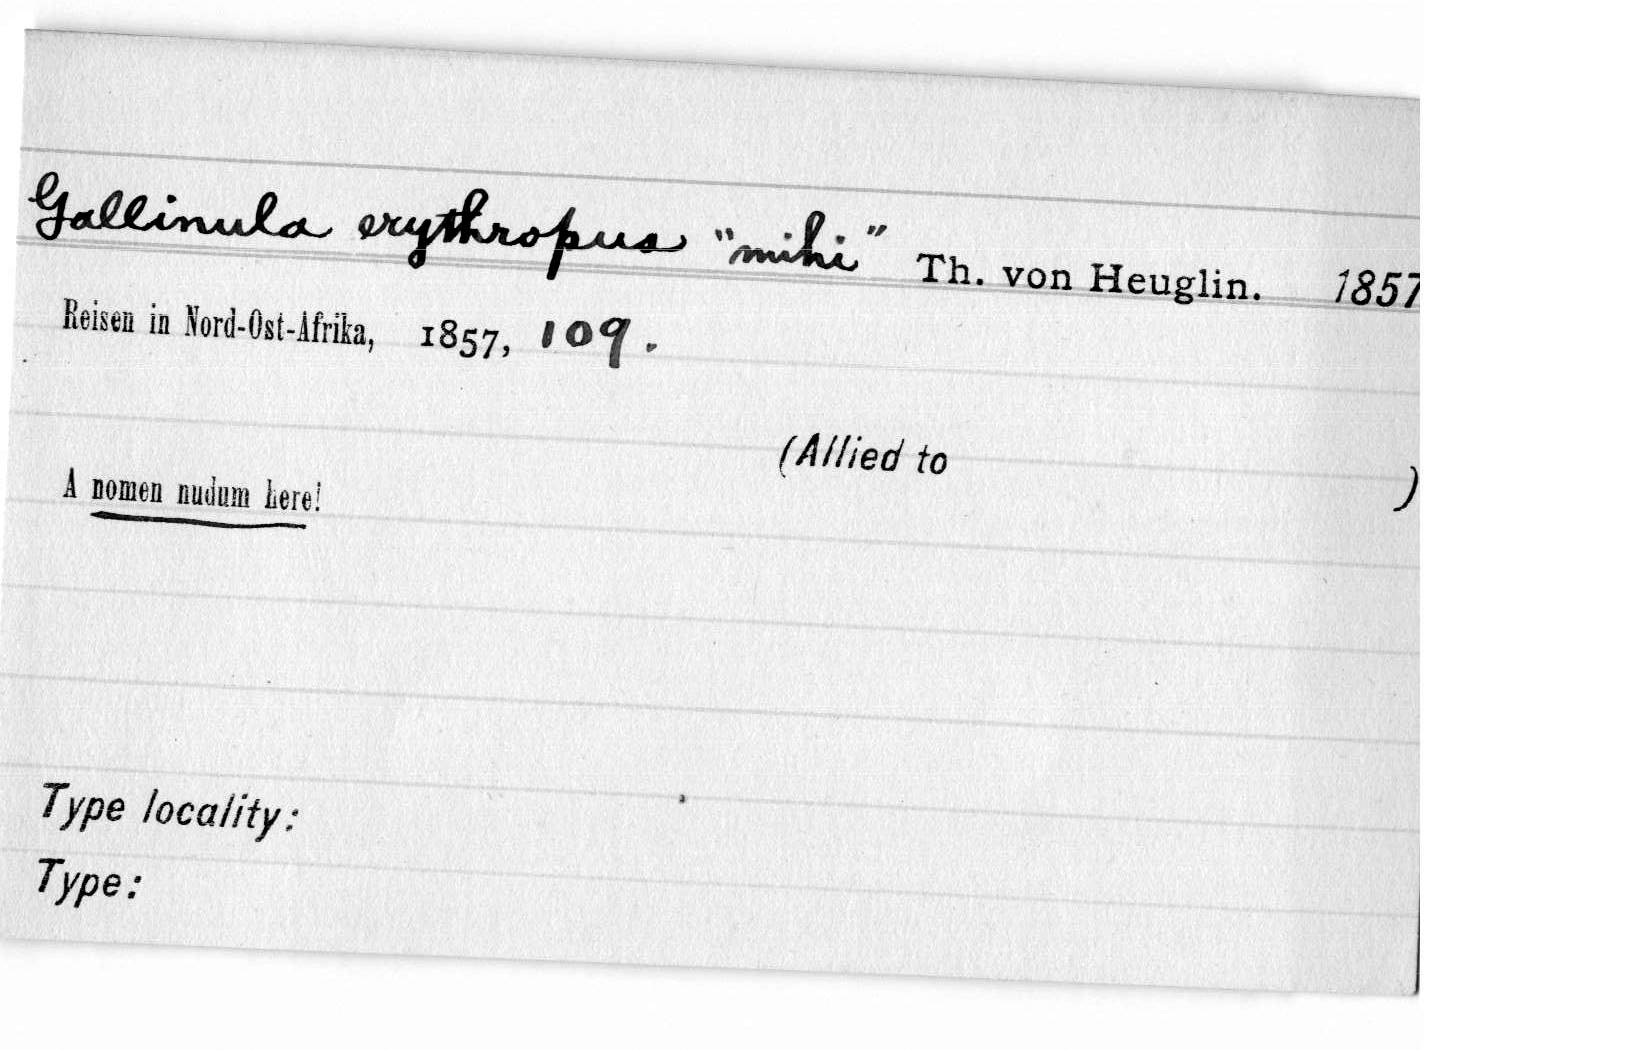 Gallinula erythropus "mihi" Th. von Heuglin. 1857
Reisen in Nord-Ost-Afrika, 1857, 109.
(Allied to )
A nomen nudum here!
Type locality:
Type: